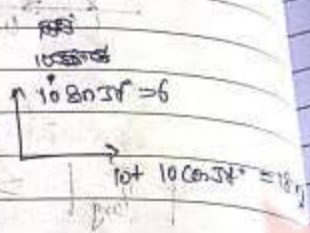 10 sin 37° = 6
10 + 10 cos 37° = 18